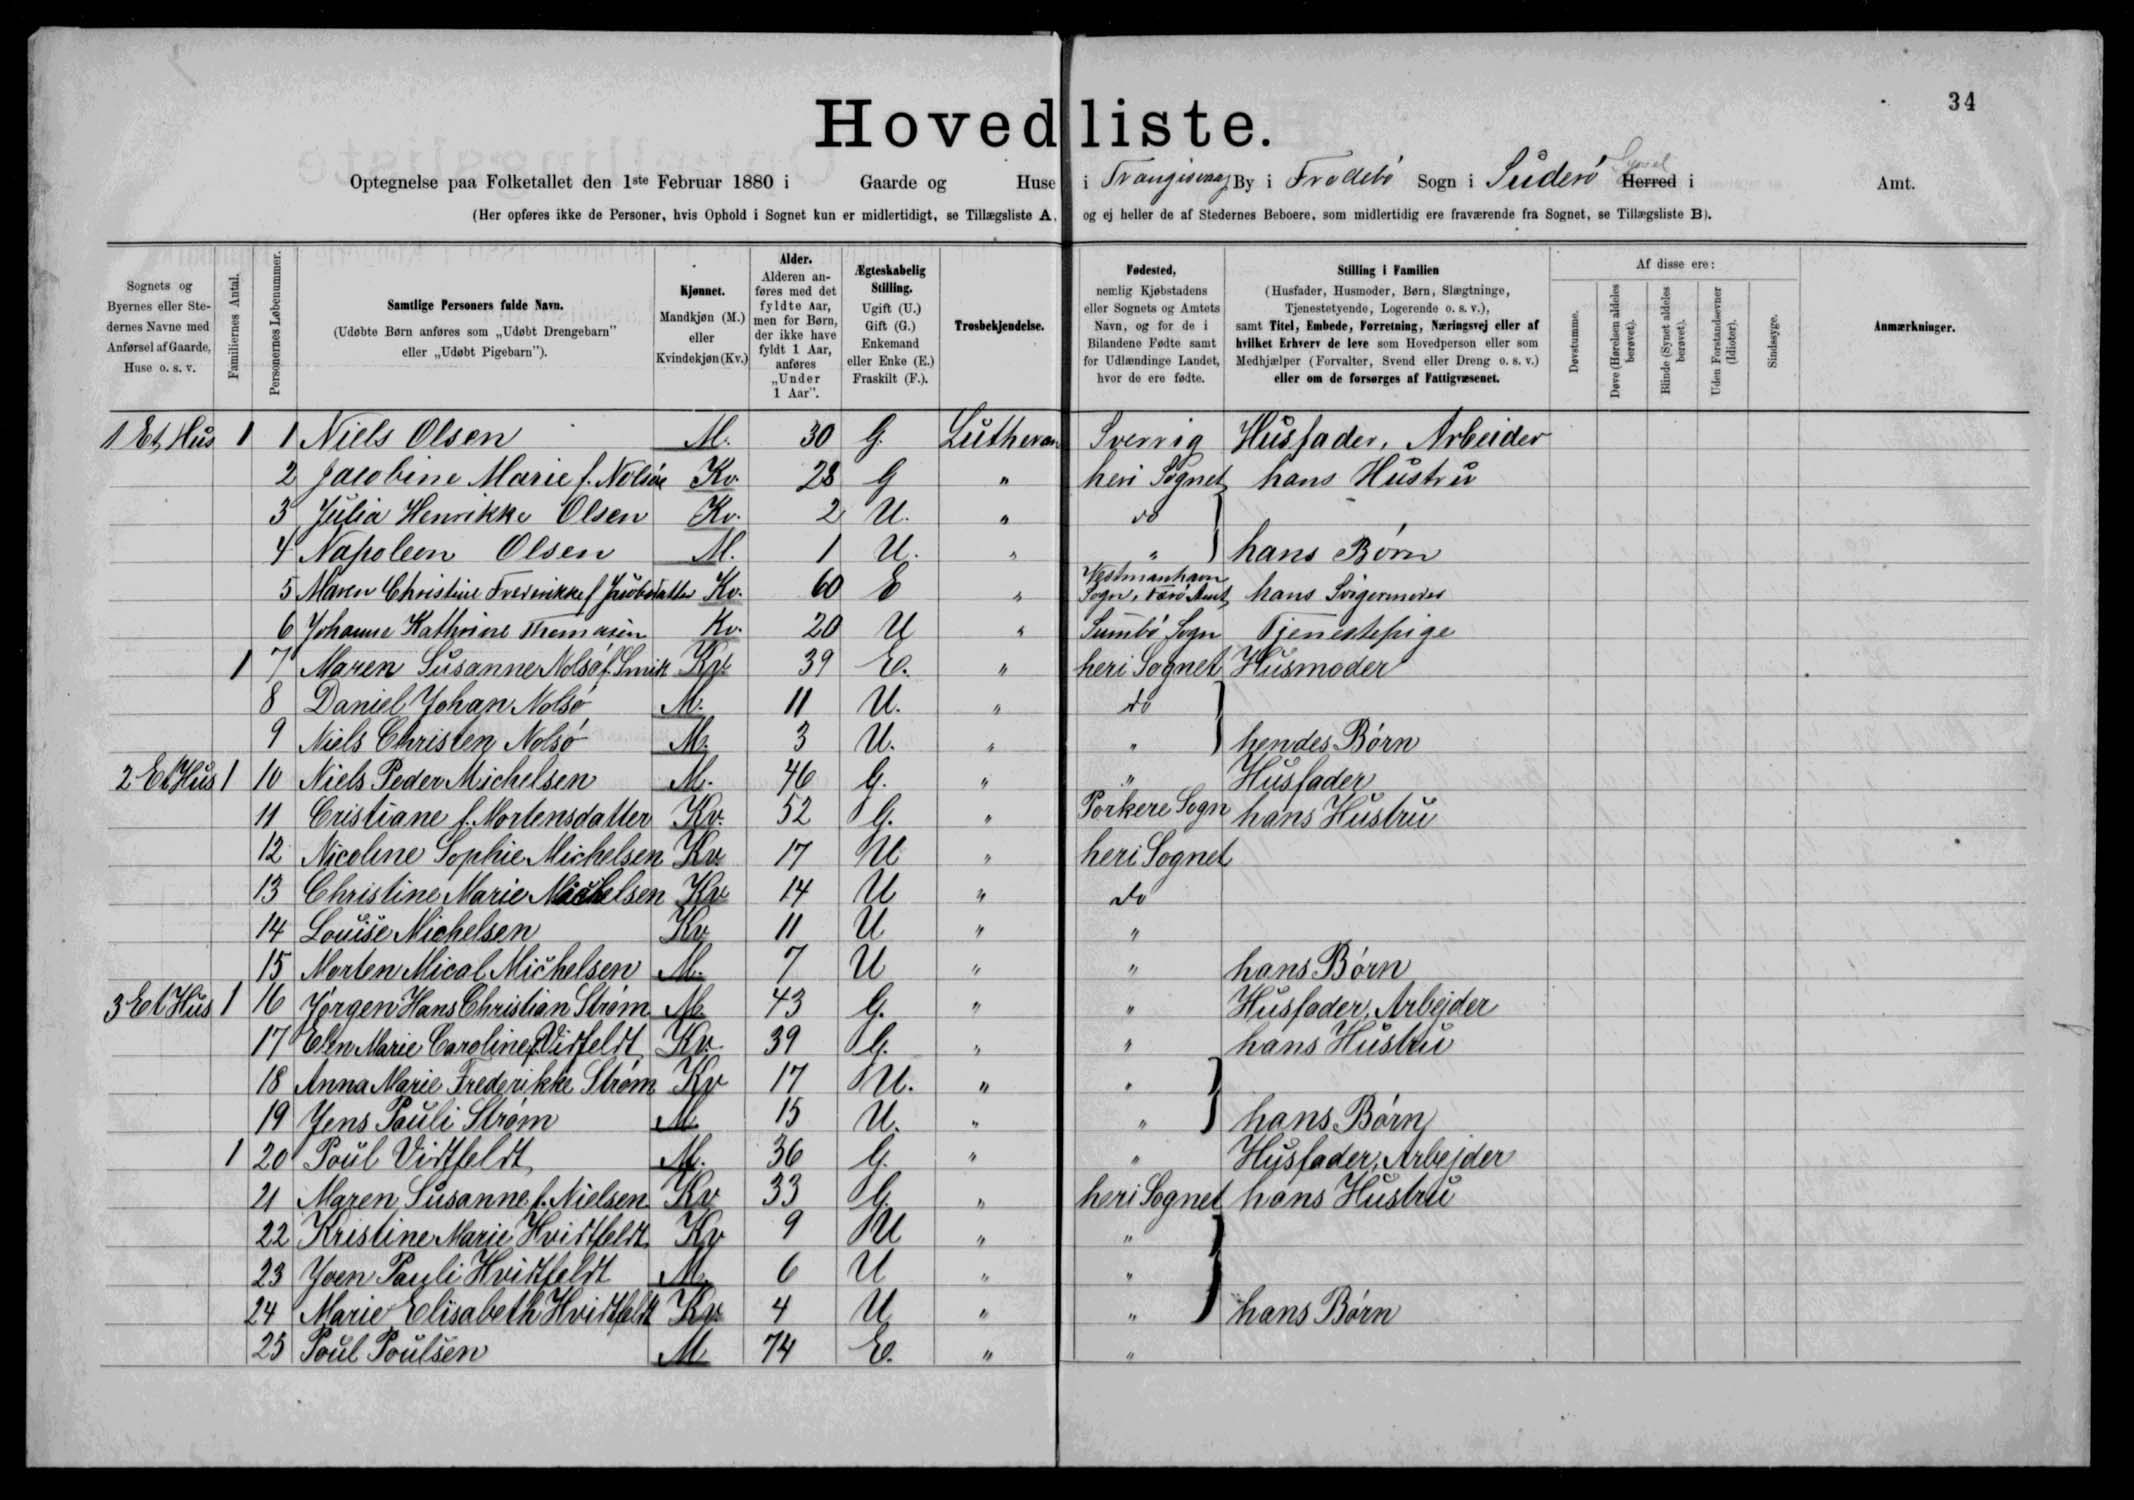 34
Hovedliste.
Optegnelse paa Folketallet den 1ste Februar 1880 i Gaarde og Huse i Trangisvaag By i Frodebø Sogn i Suderø Herred Syssel i Amt.
(Her opføres ikke de Personer, hvis Ophold i Sognet kun er midlertidigt, se Tillægsliste A, og ej heller de af Stedernes Beboere, som midlertidig ere fraværende fra Sognet, se Tillægsliste B).
Sognets og Byernes eller Stedernes Navne med Anførsel af Gaarde, Huse o. s. v.
Familiernes Antal.
Personernes Løbenummer.
Samtlige Personers fulde Navn.
(Udøbte Børn anføres som „Udøbt Drengebarn" eller „Udøbt Pigebarn").
Kjønnet.
Mandkjøn (M.) eller Kvindekjøn (Kv.)
Alder.
Alderen anføres med det fyldte Aar, men for Børn, der ikke have fyldt 1 Aar, anføres „Under 1 Aar".
Ægteskabelig Stilling.
Ugift (U.) Gift (G.) Enkemand eller Enke (E.) Fraskilt (F.).
Trosbekjendelse.
Fødested,
nemlig Kjøbstadens eller Sognets og Amtets Navn, og for de i Bilandene Fødte samt for Udlændinge Landet, hvor de ere fødte.
Stilling i Familien
(Husfader, Husmoder, Børn, Slægtninge, Tjenestetyende, Logerende o. s. v.), samt Titel, Embede, Forretning, Næringsvej eller af hvilket Erhverv de leve som Hovedperson eller som Medhjælper (Forvalter, Svend eller Dreng o. s. v.) eller om de forsørges af Fattigvæsenet.
Af disse ere:
Døvstumme.
Døve (Hørelsen aldeles berøvet).
Blinde (Synet aldeles berøvet).
Uden Forstandsevner (Idioter).
Sindssyge.
Anmærkninger.
1 Et Hus 1 1 Niels Olsen M. 30 G. Lutheran Sverrig Husfader, Arbeider
2 Jacobine Marie f. Nolsøe Kv. 28 G " heri Sognet hans Hustru
3 Julia Henrikke Olsen Kv. 2 U. " do
4 Napoleon Olsen M. 1 U. " " hans Børn
5 Maren Christine Frederikke f Jacobsdatter Kv. 60 E " Vestmanhavn Sogn, Færø Amt hans Svigermoder
6 Johanne Kathrine Thomasen Kv. 20 U " Sumbø Sogn Tjenestepige
1 7 Maren Susanne Nolsø f. Smith Kv. 39 E. " heri Sognet Husmoder
8 Daniel Johan Nolsø M. 11 U. " do
9 Niels Christen Nolsø M. 3 U. " " hendes Børn
2 Et Hus 1 10 Niels Peder Michelsen M. 46 G. " " Husfader
11 Cristiane f. Mortensdatter Kv. 52 G. " Porkere Sogn hans Hustru
12 Nicoline Sophie Michelsen Kv 17 U " heri Sognet
13 Christine Marie Michelsen Kv 14 U " do
14 Louise Michelsen Kv 11 U " "
15 Morten Mical Michelsen M. 7 U " " hans Børn
3 Et Hus 1 16 Jørgen Hans Christian Strøm M. 43 G. " " Husfader, Arbejder
17 Elen Marie Caroline f. Vidfeldt Kv. 39 G. " " hans Hustru
18 Anna Marie Frederikke Strøm Kv 17 U. " "
19 Jens Pauli Strøm M. 15 U. " " hans Børn
1 20 Poul Vidtfeldt M. 36 G. " " Husfader, Arbejder
21 Maren Susanne f. Nielsen Kv 33 G. " heri Sognet hans Hustru
22 Kristine Marie Hvidtfeldt Kv 9 U " "
23 Joen Pauli Hvidtfeldt M. 6 U " "
24 Marie Elisabeth Hvidtfeldt Kv 4 U " " hans Børn
25 Poul Poulsen M 74 E. " "